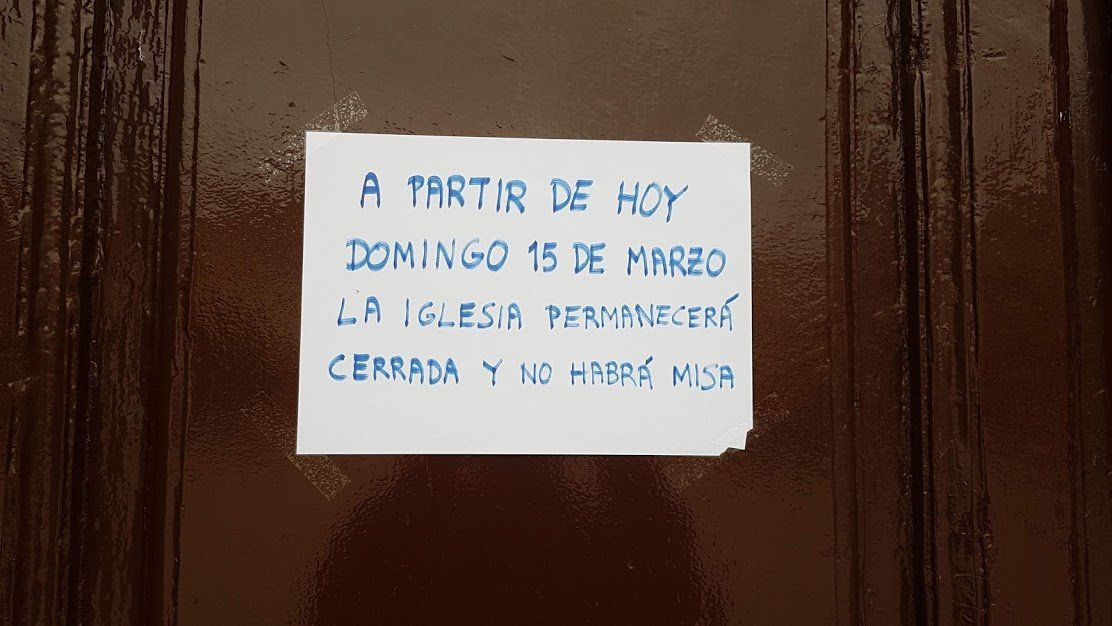 A PARTIR DE HOY
DOMINGO 15 DE MARZO
LA IGLESIA PERMANECERÁ
CERRADA Y NO HABRÁ MISA